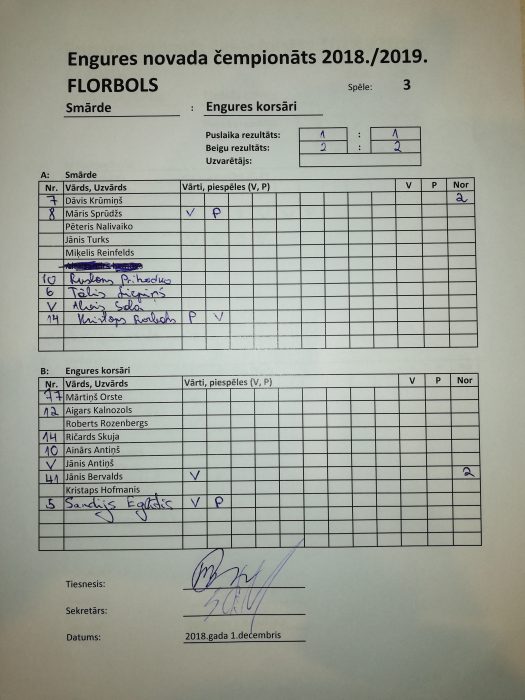 Engures novada čempionāts 2018./2019.
FLORBOLS Spēle: 3
Smārde : Engures korsāri
Puslaika rezultāts: 1 : 1
Beigu rezultāts: 2 : 2
Uzvarētājs:
A: Smārde
Nr. Vārds, Uzvārds Vārti, piespēles (V, P) V P Nor
7 Dāvis Krūmiņš 2
8 Māris Sprūdžs V P
Pēteris Nalivaiko
Jānis Turks
Miķelis Reinfelds
10 Ruslans
6 Tālis
V
14 Kristaps P V
B: Engures korsāri
Nr. Vārds, Uzvārds Vārti, piespēles (V, P) V P Nor
77 Mārtiņš Orste
12 Aigars Kalnozols
Roberts Rozenbergs
14 Ričards Skuja
10 Ainārs Antiņš
V Jānis Antiņš
41 Jānis Bervalds V 2
Kristaps Hofmanis
5 Sandijs Eglītis V P
Tiesnesis:
Sekretārs:
Datums: 2018.gada 1.decembris